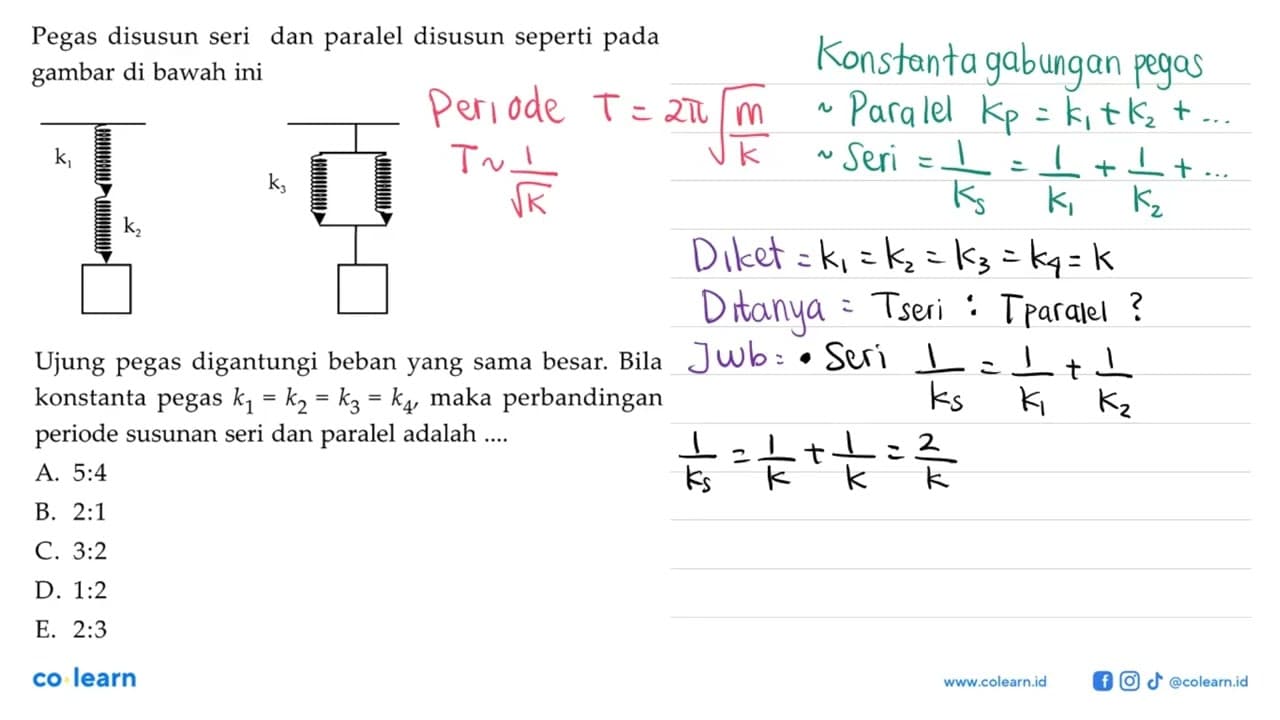 Pegas disusun seri dan paralel disusun seperti pada
gambar di bawah ini
k₁
k₂
k₃
Ujung pegas digantungi beban yang sama besar. Bila
konstanta pegas k₁ = k₂ = k₃ = k₄, maka perbandingan
periode susunan seri dan paralel adalah ....
A. 5:4
B. 2:1
C. 3:2
D. 1:2
E. 2:3
Periode T = 2π√(m/k)
T ~ 1/√k
Konstanta gabungan pegas
~ Paralel Kp = k₁ + k₂ + ...
~ Seri = 1/Ks = 1/K₁ + 1/K₂ + ...
Diket = k₁ = k₂ = k₃ = k₄ = k
Ditanya = Tseri : Tparalel ?
Jwb = • Seri 1/ks = 1/K₁ + 1/K₂
1/ks = 1/k + 1/k = 2/k
co learn
www.colearn.id
@colearn.id